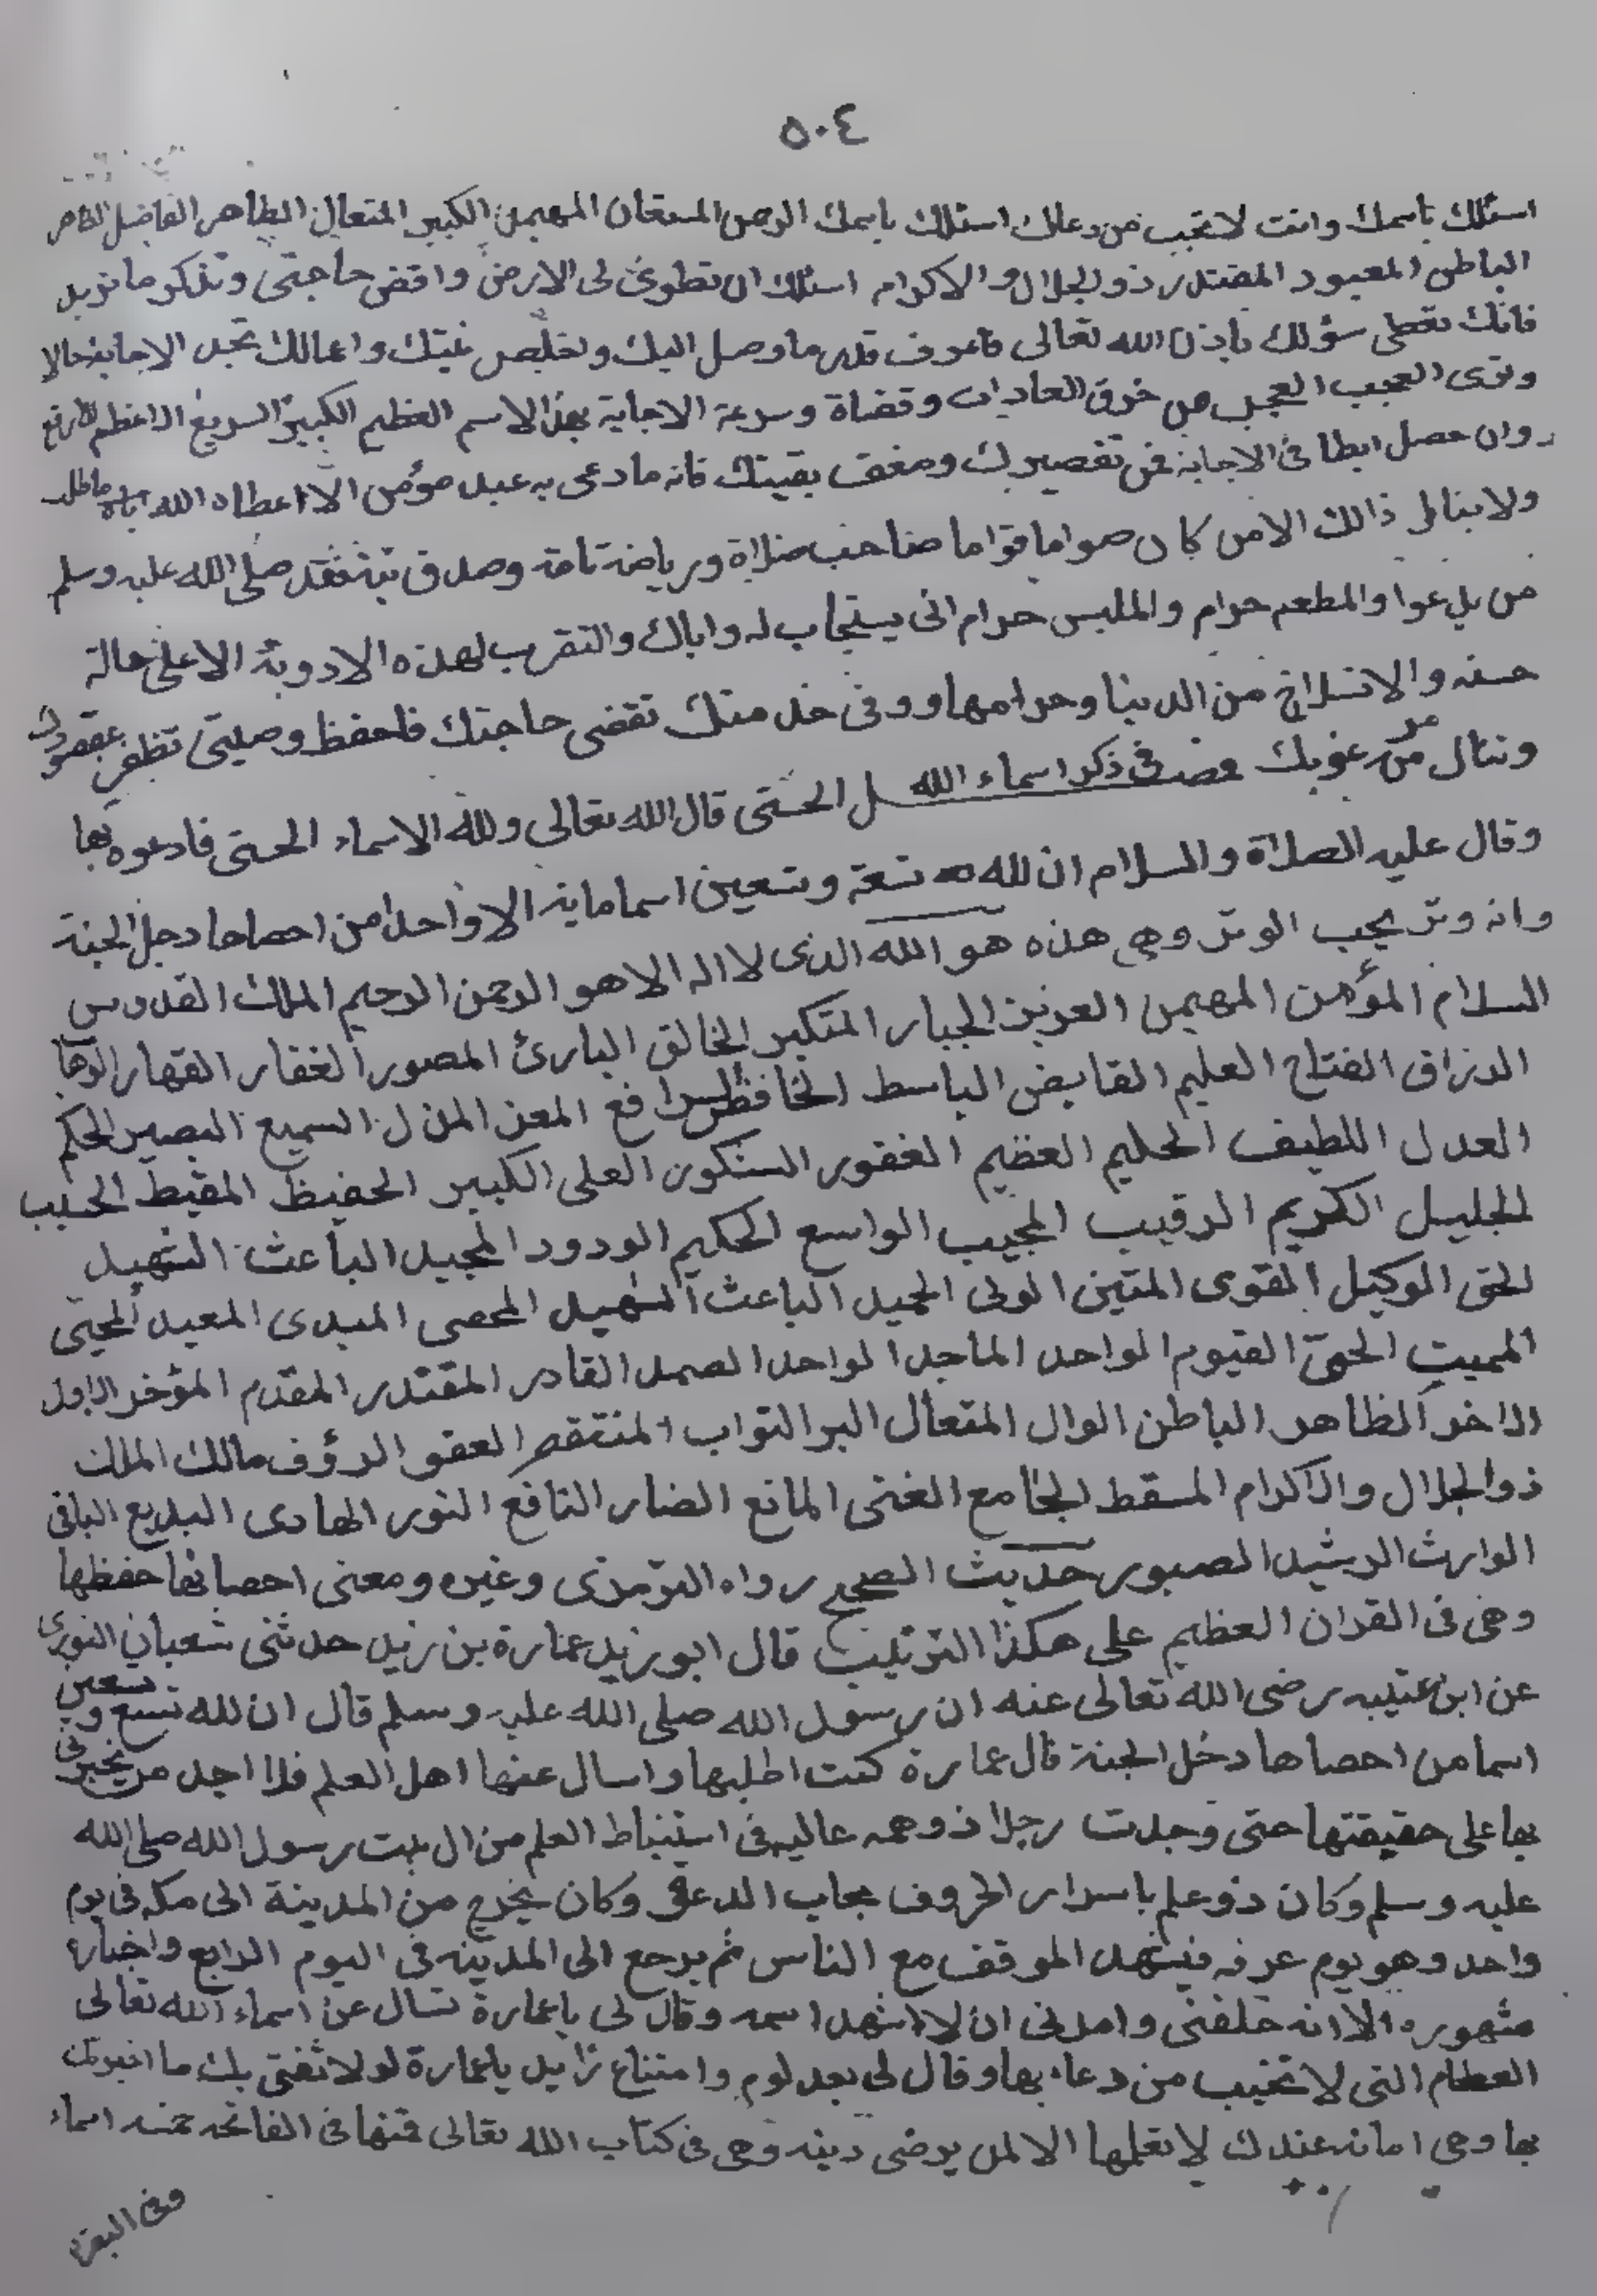 ٥٠٤
اسئلك باسمك وانت لا تخيب من دعاك اسئلك باسمك الرحمن المستعان المهيمن الكبير المتعال الظاهر الفاضل
الباطن المعبود المقتدر ذو الجلال والاكرام اسئلك ان تطوى لى الارض واقض حاجتى وتذكر ما تريد
فانك تعطى سؤلك باذن الله تعالى فاعرف قدر ما وصل اليك وتخلص نيتك واعمالك تجد الاجابة حالا
وترى العجب العجب من خرق العادات وقضاة وسرعة الاجابة بهذا الاسم العظيم الكبير السريع الاعظم
وان حصل ابطا فى الاجابة فمن تقصيرك وضعف يقينك فانه ما دعى به عبد مؤمن الا اعطاه الله
ولا ينال ذالك الا من كان صواما قواما صاحب صلاة ورياضة تامة وصدق نية فقد صلى الله عليه وسلم
من يدعوا والمطعم حرام والملبس حرام انى يستجاب له واياك والتقرب لهذه الادوية الا على حالة
حسنه والانسلاخ من الدينا وحرامها ووفى خدمتك تقضى حاجتك فاحفظ وصيتى تظفر بمقصودك
وتنال مرغوبك فصل فى ذكر اسماء الله الحسنى قال الله تعالى ولله الاسماء الحسنى فادعوه بها
وقال عليه الصلاة والسلام ان لله تسعة وتسعين اسما ماية الا واحدا من احصاها دخل الجنة
وانه وتر يحب الوتر وهى هذه هو الله الذى لا اله الا هو الرحمن الرحيم الملك القدوس
السلام المؤمن المهيمن العزيز الجبار المتكبر الخالق البارئ المصور الغفار القهار الوهاب
الرزاق الفتاح العليم القابض الباسط الخافظ الرافع المعز المذل السميع البصير الحكم
العدل اللطيف الحليم العظيم الغفور الشكور العلى الكبير الحفيظ المقيط الحسيب
الجليل الكريم الرقيب المجيب الواسع الحكيم الودود المجيد الباعث الشهيد
الحق الوكيل القوى المتين الولى الحميد الباعث الشهيد المحصى المبدى المعيد المحيى
المميت الحىّ القيوم الواحد الماجد الواحد الصمد القادر المقتدر المقدم المؤخر الاول
الاخر الظاهر الباطن الوال المتعال البر التواب المنتقم العفو الرؤف مالك الملك
ذو الجلال والاكرام المسقط الجامع الغنى المانع الضار النافع النور الهادى البديع الباقى
الوارث الرشيد الصبور حديث الصحيح رواه الترمذى وغيره ومعنى احصائها حفظها
وهى فى القران العظيم على هكذا الترتيب قال ابو زيد عمارة بن زيد حدثنى شعبان الثورى
عن ابن عتيبه رضى الله تعالى عنه ان رسول الله صلى الله عليه وسلم قال ان لله تسع وتسعين
اسما من احصاها دخل الجنة قال عمارة كنت اطلبها واسال عنها اهل العلم فلا اجد من يخبرنى
بها على حقيقتها حتى وجدت رجلا ذو همه عاليه فى استنباط العلم من ال بيت رسول الله صلى الله
عليه وسلم وكان ذو علم باسرار الحروف مجاب الدعوة وكان يخرج من المدينة الى مكه فى يوم
واحد وهو يوم عرفه فيشهد الموقف مع الناس ثم يرجع الى المدينه فى اليوم الرابع واخباره
مشهوره الا انه حلفنى وامرنى ان لا اشهد اسمه وقال لى ياعمارة تسال عن اسماء الله تعالى
العظام التى لا تخيب من دعاء بها وقال لى بعد لوم وامتناع زايد ياعمارة لولا ثقتى بك ما اخبرتك
بها وهى امانه عندك لا تعلمها الا لمن يرضى دينه وهى فى كتاب الله تعالى فمنها فى الفاتحه خمسه اسماء
وفى البقرة